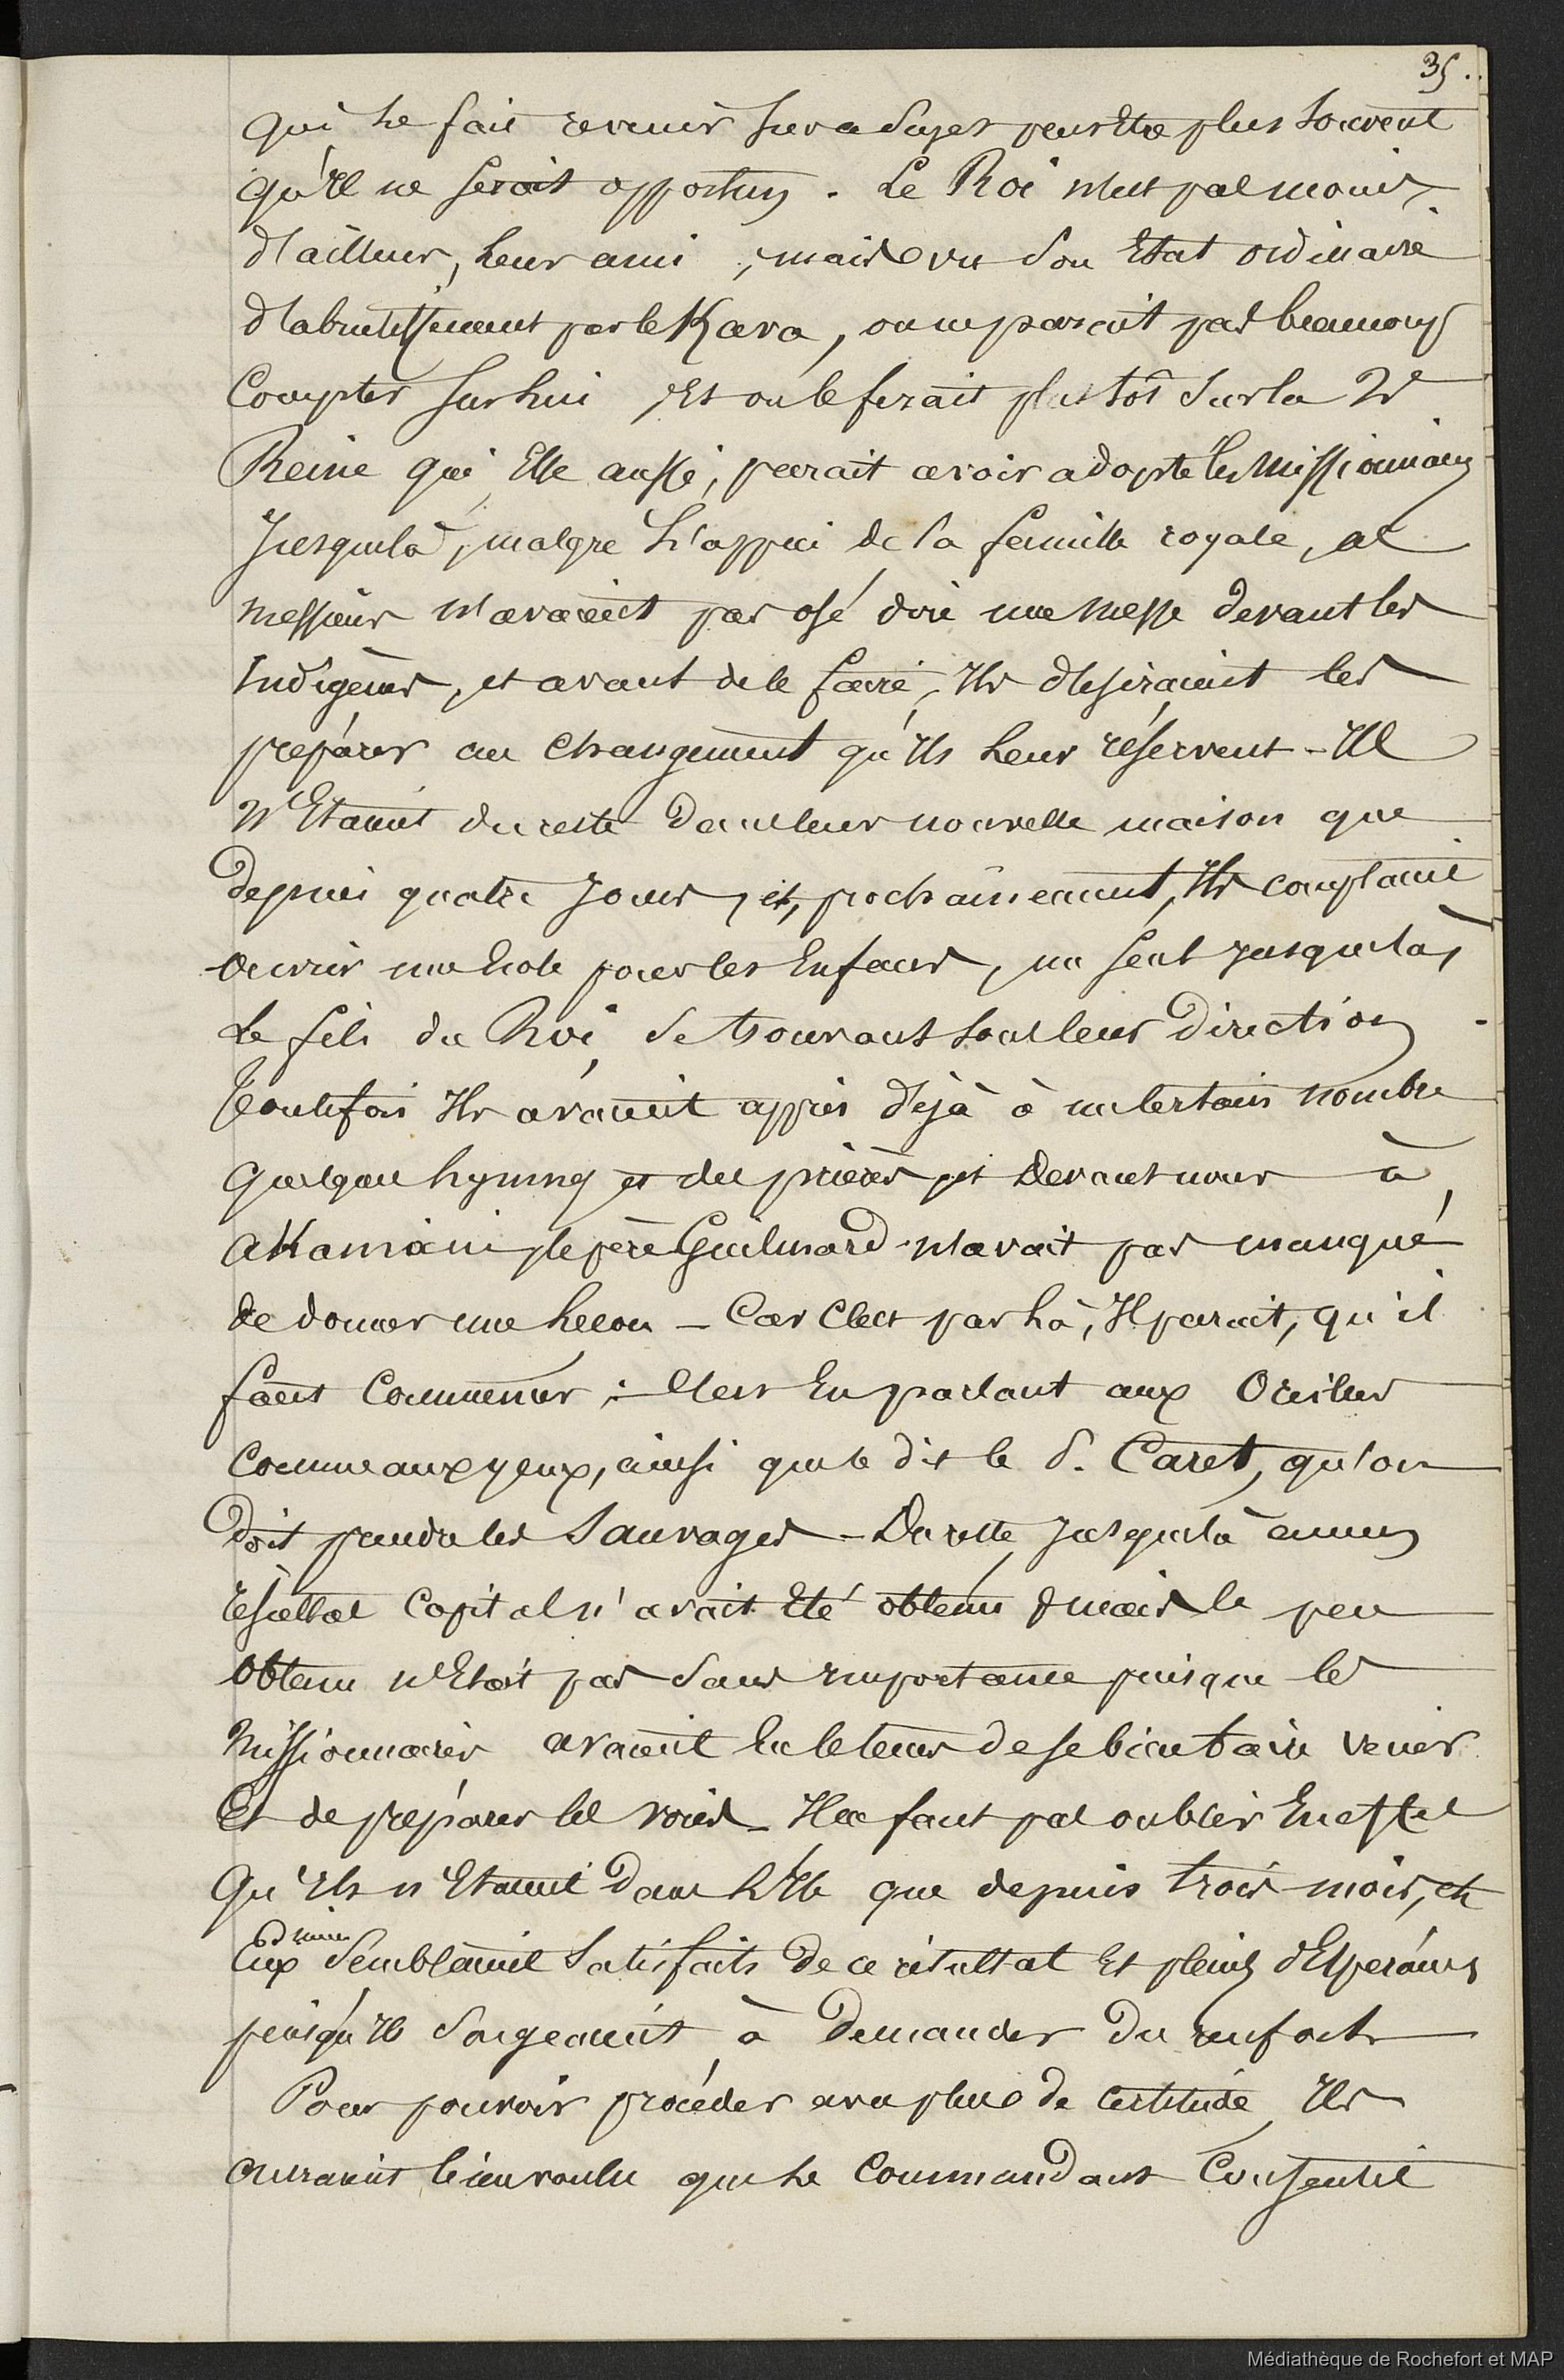 35.
qui le fait revenir sur a sujet peut être plus souvent
qu'Il ne serait opportun. Le Roi n'est pas moins
d'ailleurs, leur ami ; mais vu son Etat ordinaire
d'abrutissement par le Kava, on ne parait pas beaucoup
Compter sur lui, Et on le ferait plustôt sur la 2e
Reine qui, Elle aussi, parait avoir adopté les Missionnaires
Jusques là, malgré L'appui de la famille royale, ces
Messieurs n'avaient pas osé dire une Messe devant les
Indigènes, et avant de le faire, Ils désiraient les
préparer au Changement qu'Ils leur réservent - Ils
N'Etaient du reste dans leur nouvelle maison que
depuis quatre Jours, et, prochainement, Ils comptaient
ouvrir une Ecole pour les Enfants, un seul jusques là,
Le fils du Roi, se trouvant sous leur direction.
Toutefois Ils avaient appris déjà à un certain nombre
quelques hymnes et des prières, et devant nous à
Akamaïni, le père Guilmard n'avait pas manqué
de donner une Leçon - Car C'est par là, Il parait, qu'il
faut Commencer ; C'est En parlant aux Oreilles
Comme aux yeux, ainsi que le dit le S. Caret, qu'on
doit prendre les Sauvages - Du reste, Jusques là aucun
résultat Capital n'avait Eté obtenu, mais le peu
obtenu n'Etait pas sans importance puisque les
Missionnaires avaient Eu le tems de se bien faire venir
Et de préparer les voies - Il ne faut pas oublier En effet
Qu'Ils n'Etaient dans L'Ile que depuis trois mois, et
Eux mêmes semblaient Satisfaits de ce résultat Et pleins d'Espérances
puisqu'Ils songeaient à demander du renfort
Pour pouvoir procéder avec plus de certitude, Ils
auraient bien voulu que le Commandant Consentit
Médiathèque de Rochefort et MAP